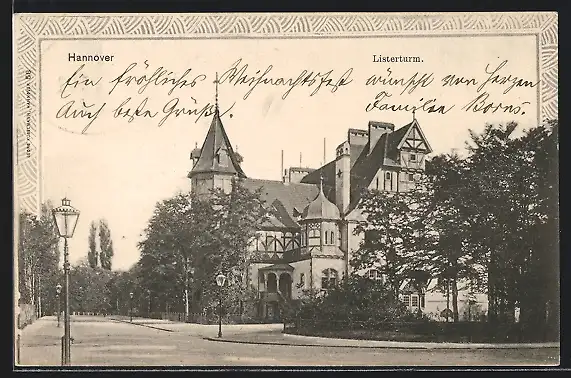 Hannover
Listerturm.
Ein fröhliches Weihnachtsfest wünscht von Herzen
Auch beste Grüße.
Familie Borns.